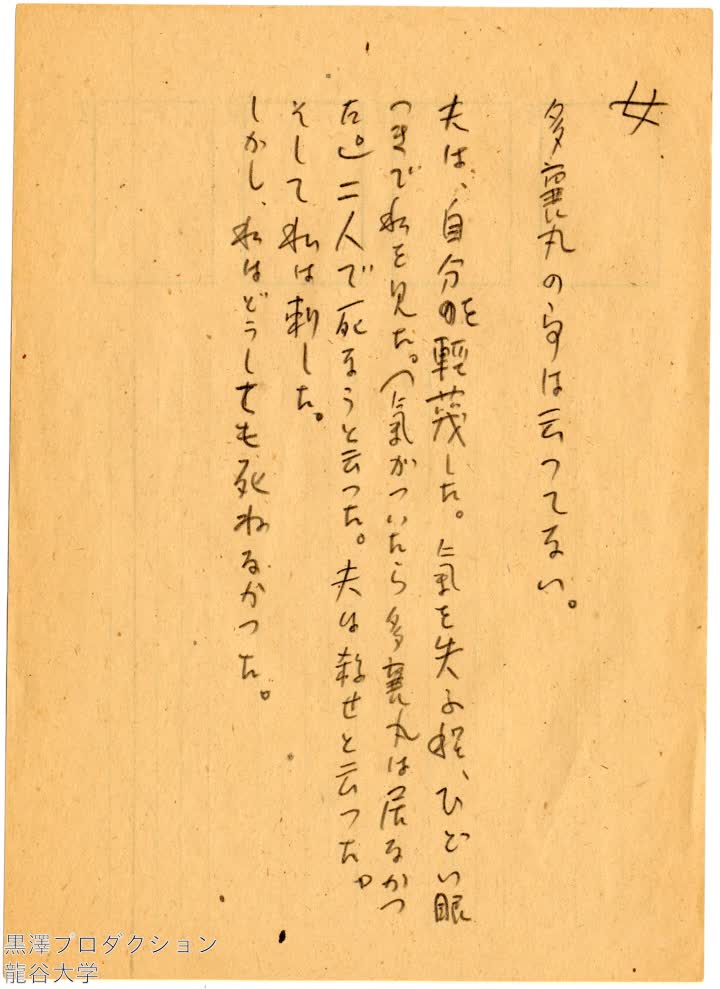 女
多襄丸の事は云つてない。
夫は、自分を輕蔑した。氣を失ふ程、ひどい眼
つきで私を見た。(氣がついたら多襄丸は居なかつ
た。)二人で死なうと云つた。夫は殺せと云つた。
そして私は刺した。
しかし、私はどうしても死ねなかつた。
黒澤プロダクション
龍谷大学